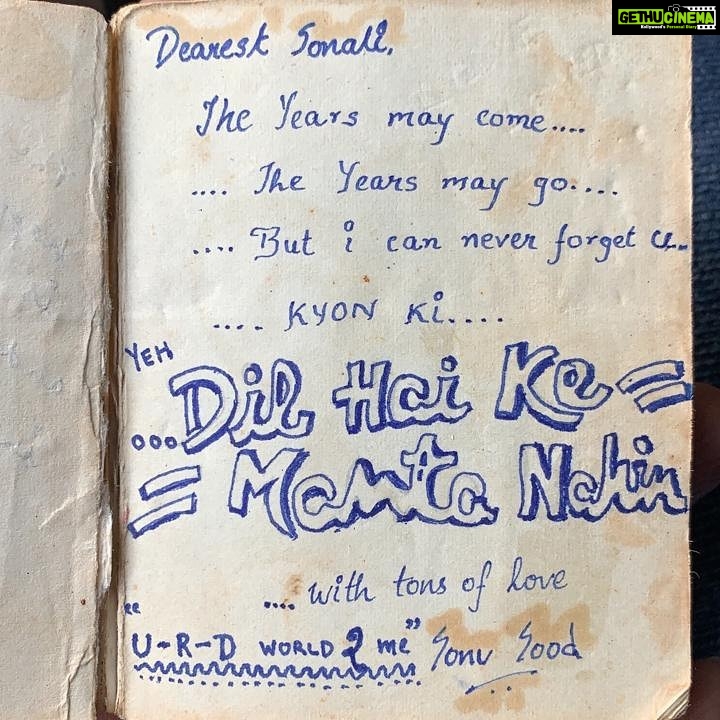 GETHUCINEMA
Kollywood's Personal Diary
Dearest Sonali,
The Years may come....
.... The Years may go....
.... But i can never forget u..
.... KYON Ki....
YEH
...Dil Hai Ke =
= Manta Nahin
.... with tons of love
"U-R-D WORLD 2 me" Sonu Sood